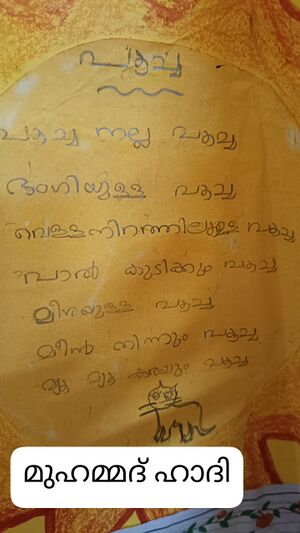 പൂച്ച
പൂച്ച നല്ല പൂച്ച
ഭംഗിയുള്ള പൂച്ച
വെള്ളനിറത്തിലുള്ള പൂച്ച
പാൽ കുടിക്കും പൂച്ച
മീശയുള്ള പൂച്ച
മീൻ തിന്നും പൂച്ച
മ്യൂ മ്യൂ കരയും പൂച്ച
മുഹമ്മദ് ഹാദി